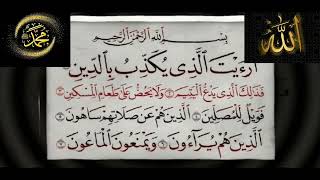 محمد
الله
بِسْمِ اللَّهِ الرَّحْمَٰنِ الرَّحِيمِ
أَرَءَيْتَ الَّذِي يُكَذِّبُ بِالدِّينِ
فَذَٰلِكَ الَّذِي يَدُعُّ الْيَتِيمَ وَلَا يَحُضُّ عَلَىٰ طَعَامِ الْمِسْكِينِ
فَوَيْلٌ لِّلْمُصَلِّينَ الَّذِينَ هُمْ عَن صَلَاتِهِمْ سَاهُونَ
الَّذِينَ هُمْ يُرَاءُونَ وَيَمْنَعُونَ الْمَاعُونَ